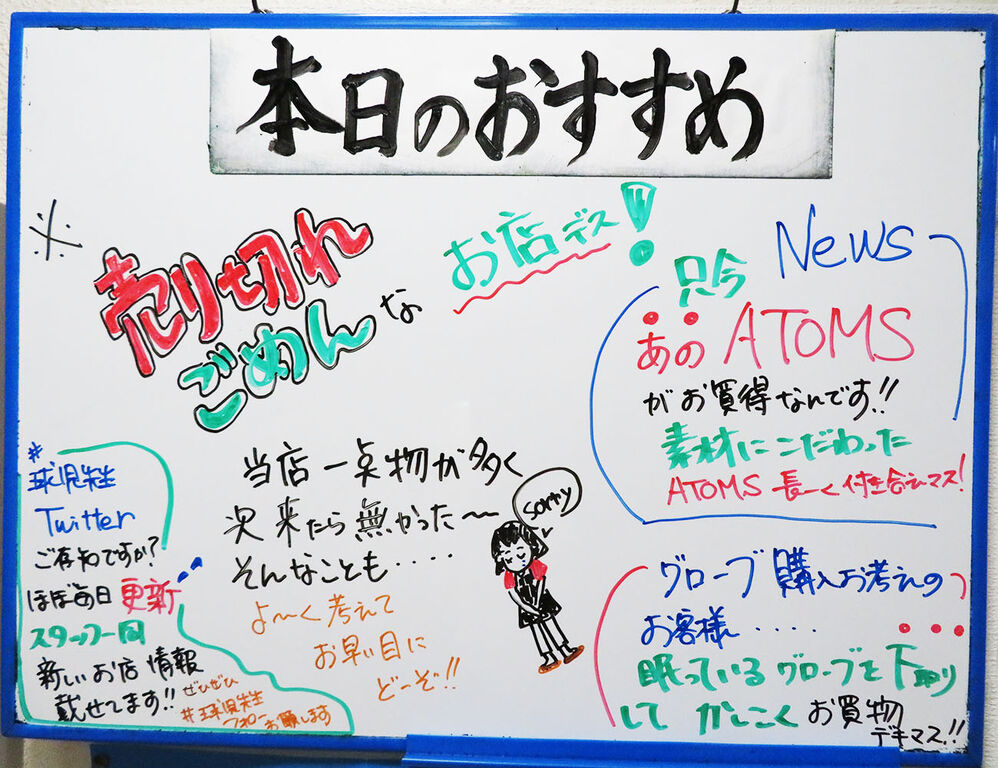 本日のおすすめ
※
売り切れ
ごめんな
お店デス!
News
只今
あの ATOMS
がお買得なんです!!
素材にこだわった
ATOMS 長ーく付き合いマス!
当店一点物が多く
次来たら無かった〜
そんなことも・・・
よ〜く考えて
お早い目に
どーぞ!!
sorry
#
球児先生
Twitter
ご存知ですか?
ほぼ毎日更新
スタッフ一同
新しいお店情報
載せてます!!
ぜひぜひ
#球児先生
フォローお願します
グローブ購入お考えの
お客様・・・・・
眠っているグローブを下取り
して かしこくお買物
デキマス!!